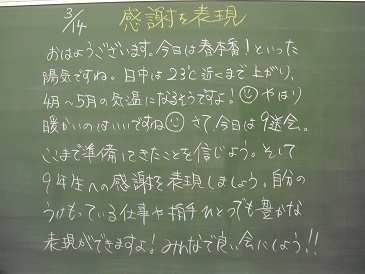 3/14 感謝を表現
おはようございます。今日は春本番!といった
陽気ですね。日中は23℃近くまで上がり、
4月〜5月の気温になるそうですよ!☺やはり
暖かいのはいいですね☺さて、今日は9送会。
ここまで準備してきたことを信じよう。そして
9年生への感謝を表現しましょう。自分の
うけもっている仕事や拍手ひとつでも豊かな
表現ができますよ!みんなで良い会にしよう!!